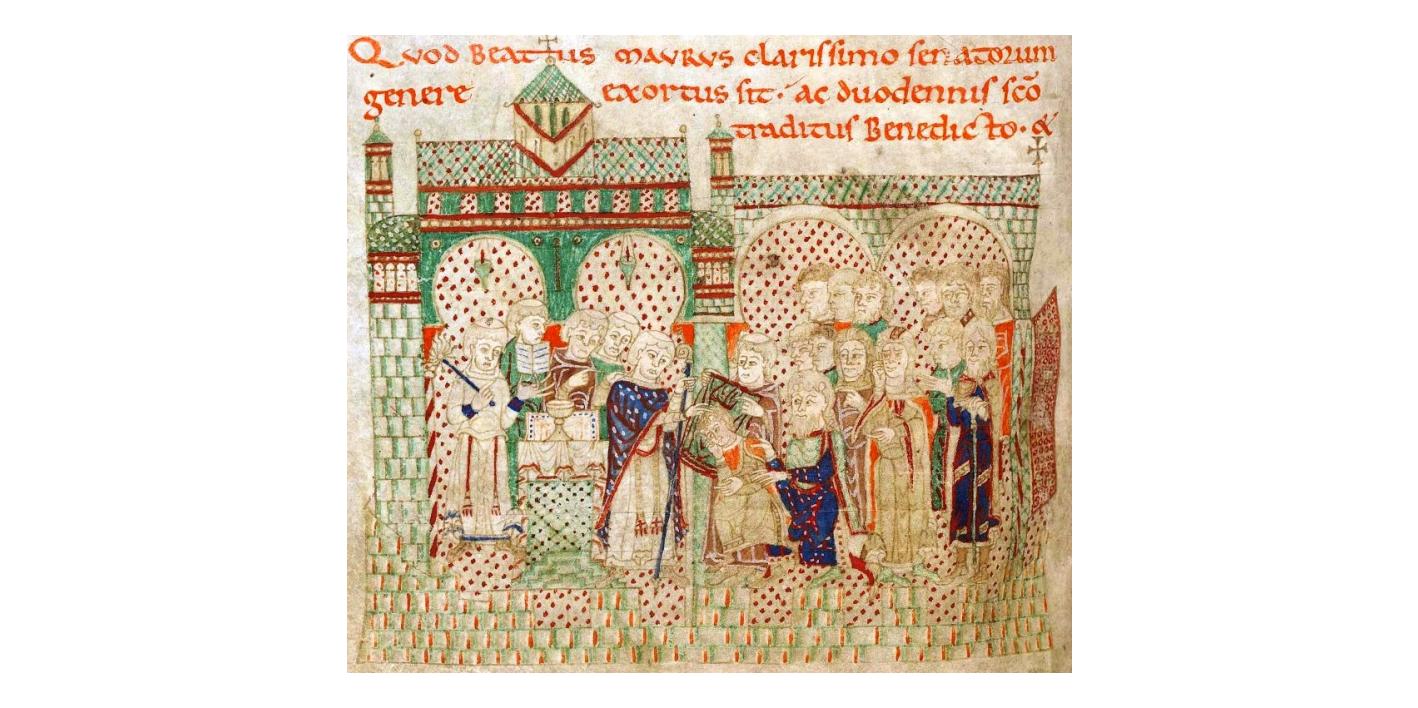 Quod Beatus maurus clarissimo senatorum
genere exortus sit· ac duodennis sc̄o
traditus Benedicto· &